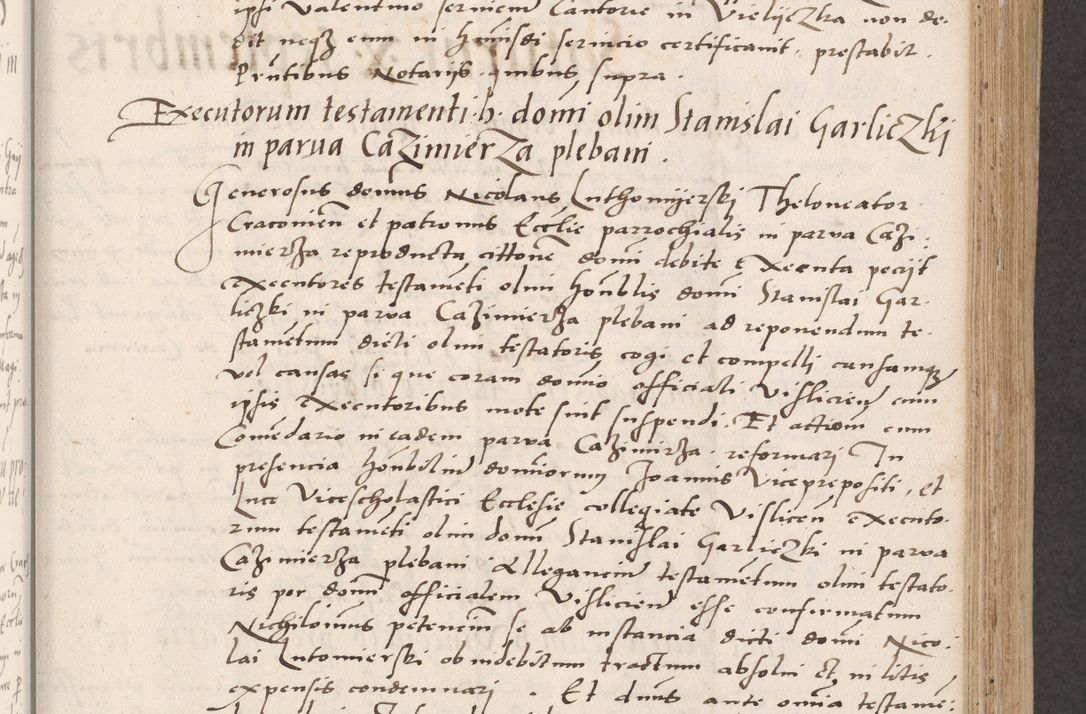 ipsi Valentino seruiens Cantorie in Vielyczka non de-
dit neqz eum in huiusdi seruicio certificauit prestabit.
Prntibus Notarijs quibus supra.
Executorum testamenti b. domi olim Stanislai Garliczki
in parua Cazimierza plebani.
Generosus domus Nicolaus Luthomyerski Theloneator
Cracouien et patronus Ecclie parrochialis in parva Cazi-
mierza reproducta cittone domi debite executa pecijt
executores testameti olim honblis domi Stanislai Gar-
liczki in parva Cazimierza plebani ad reponendum te-
stametum dicti olim testatoris cogi et compelli causamqz
vel causas si que coram domio officiali Vislicien cum
ipsis executoribus mote sint suspendi. Et actiom cum
Comedario in eadem parva Cazimirza reformari In
presencia honbilium domiorum Joannis Viceprepositi, et
Luce Vicescholastici Ecclesie collegiate Vislicen executo-
rum testameti olim domi Stanislai Garliczki in parva
Cazimierza plebani Allegancium testametum olim testato-
ris per domi officialem Vislicien esse confirmatum
Nichilominus petencium se ab instancia dicti domi Nico-
lai Lutomierski ob indebitum tractum absolui et in litis
expensis condemnari. Et dnus ante omia testame-